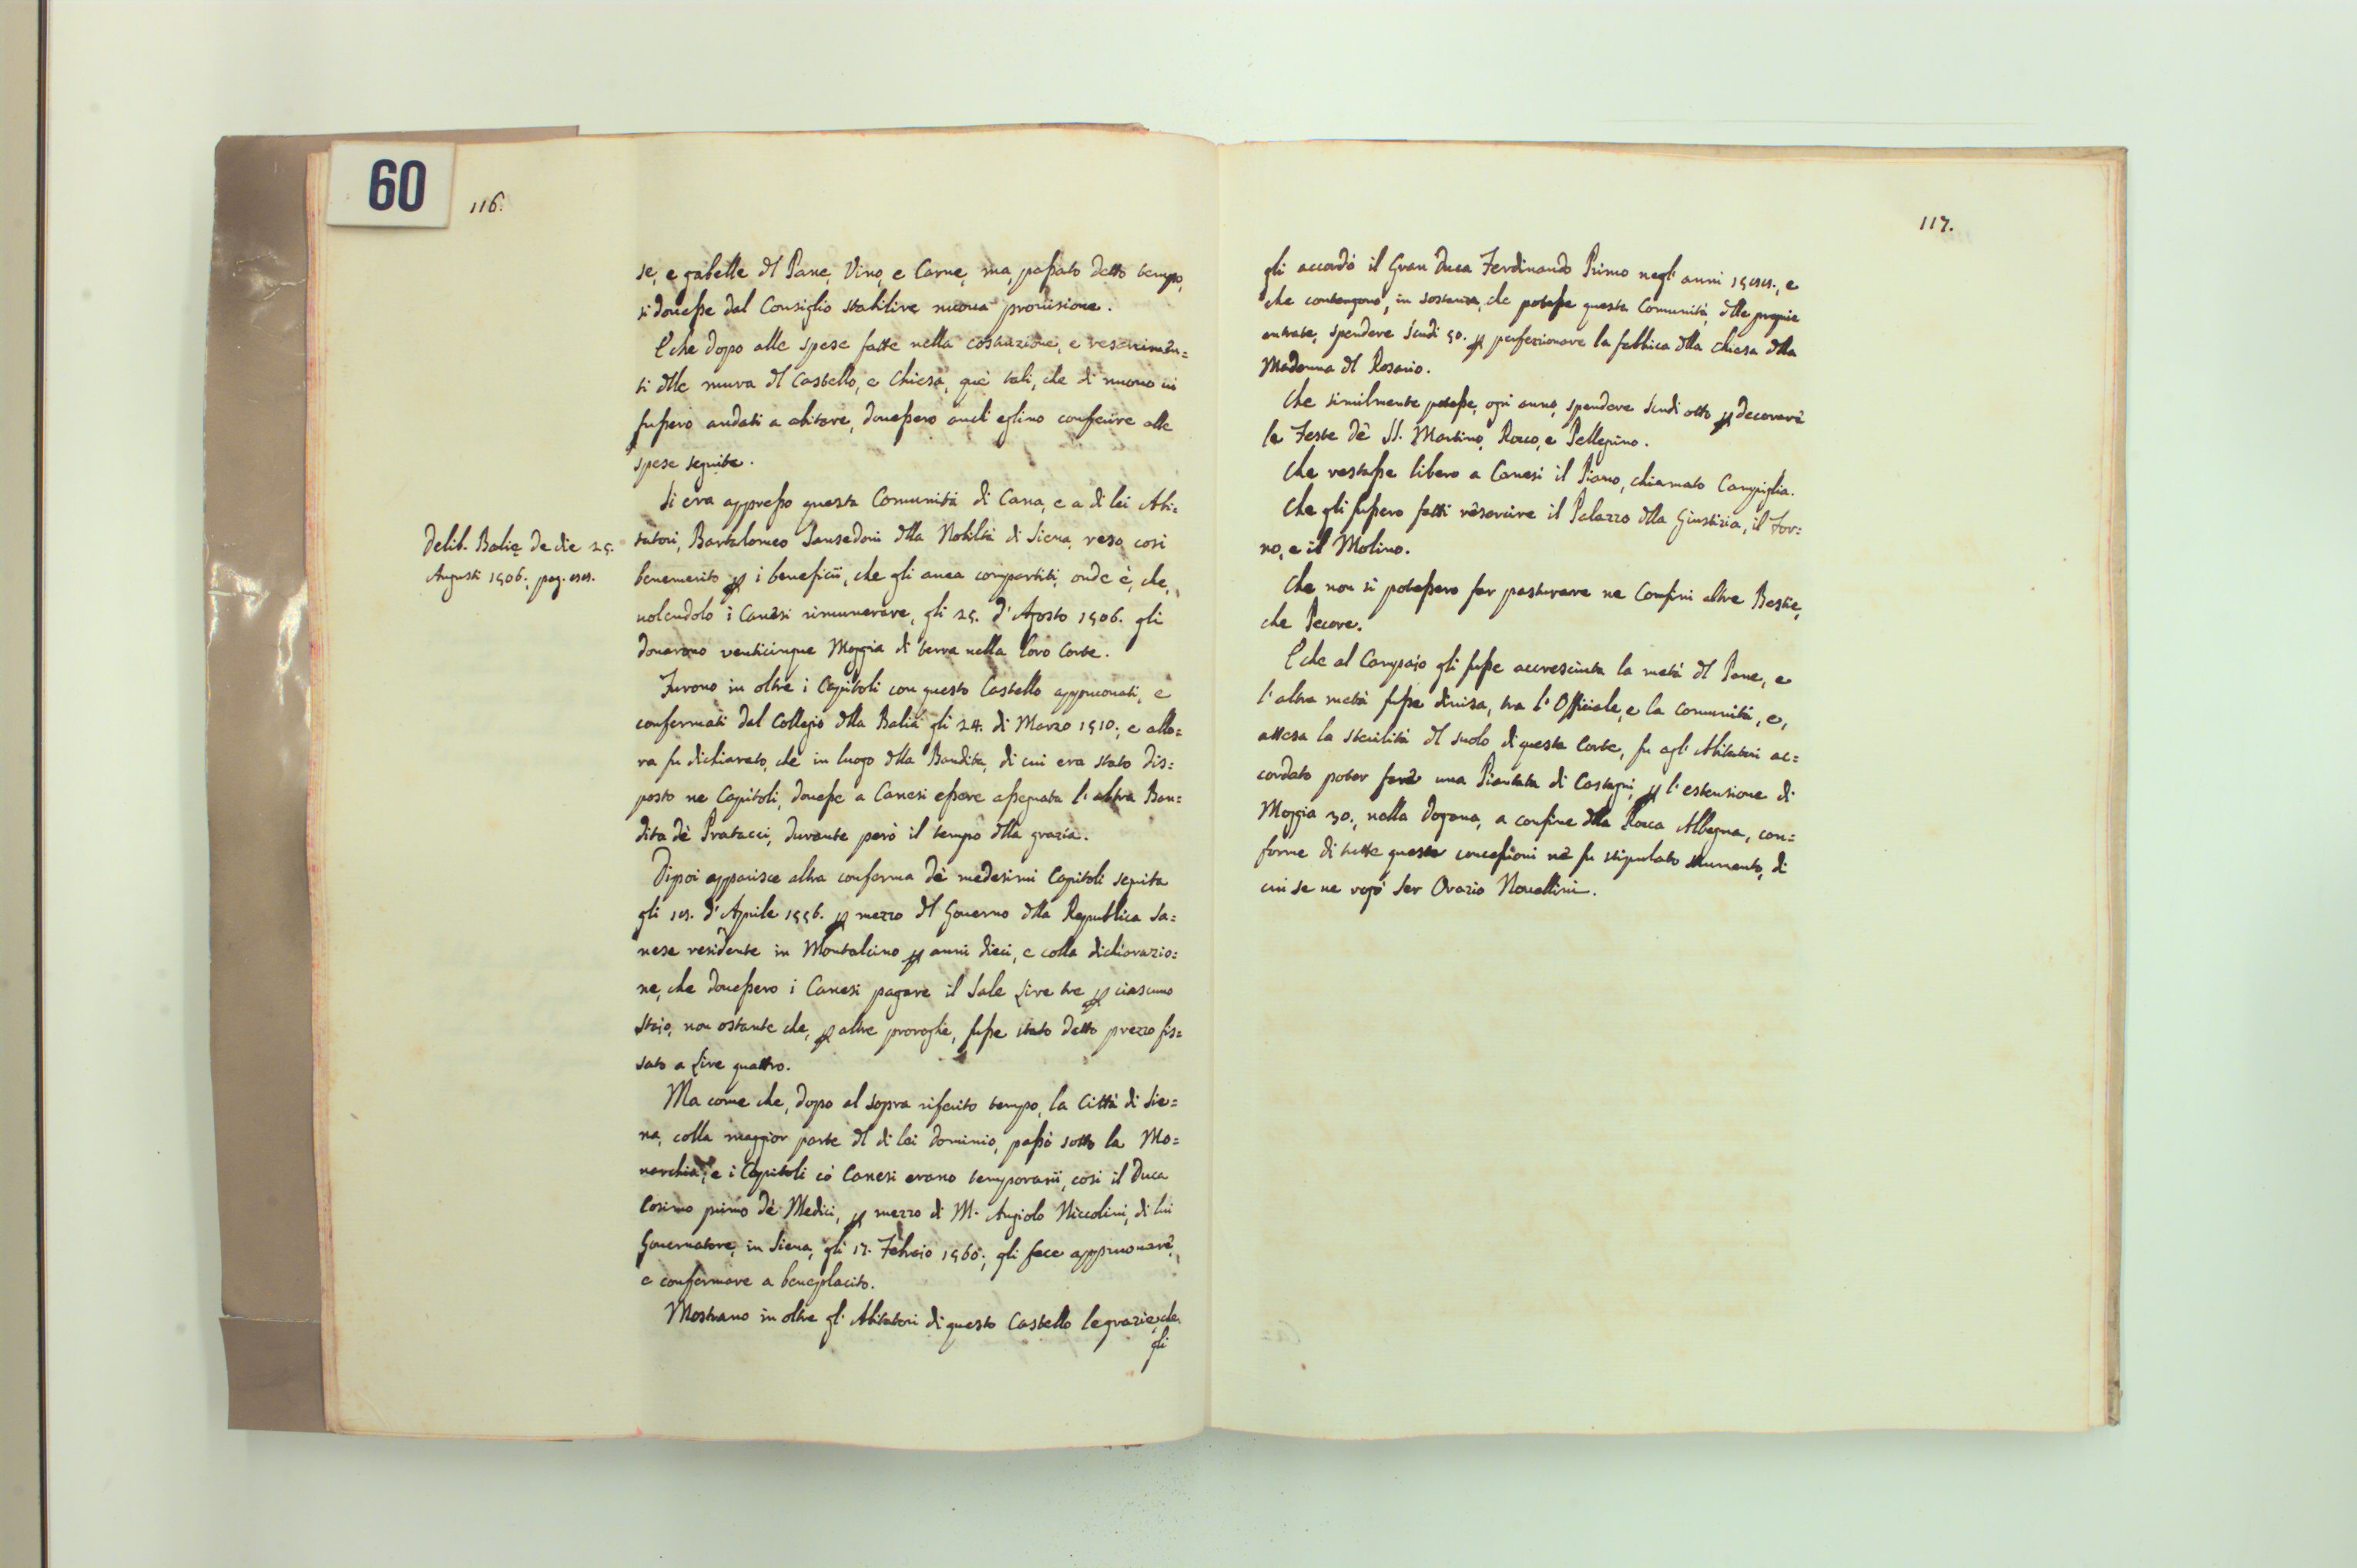 60
116.
se, e gabelle dl Pane, Vino, e Carne, ma, passato detto tempo,
si douesse dal Consiglio stabilire nuoua prouisione.
E che dopo alle spese fatte nella costruzione, e resarcimen=
ti dlle mura dl Castello, e Chiesa, que' tali, che di nuouo ui
fussero andati a abitare, douessero anch' eglino conferire alle
spese seguite.
Si era appresso questa Comunità di Cana, e a di lei Abi=
tatori, Bartolomeo Pansedoni dlla Nobiltà di Siena, reso così
benemerito p i beneficii, che gli auea compartiti, onde è, che,
uolendolo i Canesi rimunerare, gli 25. d' Agosto 1506. gli
donarono venticinque Moggia di terra nella loro Corte.
Delib. Balie de die 25.
Augusti 1506. pag.
Furono in oltre i Capitoli con questo Castello approuati, e
confermati dal Collegio dlla Balià gli 24. di Marzo 1510., e allo=
ra fu dichiarato, che in luogo dlla Bandita, di cui era stato dis=
posto ne Capitoli, douesse a Canesi essere assegnata l' altra Ban=
dita dè Pratacci, durante però il tempo dlla grazia.
Dipoi apparisce altra conferma dè medesimi Capitoli seguita
gli d' Aprile 1556. p mezzo dl Gouerno dlla Republica Sa=
nese residente in Montalcino p anni dieci, e colla dichiarazio=
ne, che douessero i Canesi pagare il Sale Lire tre p ciascuno
Staio, non ostante che, p altre proroghe, fusse stato detto prezzo fis=
sato a Lire quattro.
Ma come che, dopo al sopra riferito tempo, la Città di Sie=
na, colla maggior parte dl di lei dominio, passò sotto la Mo=
narchia, e i Capitoli có Canesi erano temporarii, così il Duca
Cosimo primo dè Medici, p mezzo di M. Angiolo Niccolini, di lui
Gouernatore, in Siena, gli 17. Febraio 1560., gli fece approuare,
e confermare a beneplacito.
Mostrano in oltre gl' Abitatori di questo Castello le grazie, che
gli
117.
gli accordò il Gran Duca Ferdinando Primo negl' anni e
che contengono, in sostanza, che potesse questa Comunità, dlle proprie
entrate, spendere Scudi 50. p perfezionare la fabbica dlla Chiesa dlla
Madonna dl Rosario.
Che similmente potesse, ogni anno, spendere Scudi otto p decorare
le Feste dè SS. Martino, Rocco, e Pellegrino.
Che restasse libero a Canesi il Piano, chiamato Campiglia.
Che gli fussero fatti resarcire il Palazzo dlla Giustizia, il For=
no, e il Molino.
Che non si potessero far pasturare ne Confini altre Bestie,
che Pecore.
E che al Campaio gli fusse accresciuta la metà dl Pane, e
l' altra metà fusse diuisa, tra l' Officiale, e la Comunità, e,
attesa la sterilità dl suolo di questa Corte, fu agl' Abitatori ac=
cordato poter fare una Piantata di Castagni, p l' estensione di
Moggia 30., nella Dogana, a confine dlla Rocca Albegna, con=
forme di tutte queste concessioni ne fu stipulato strumento, di
cui se ne rogò Ser Orazio Nouellini.